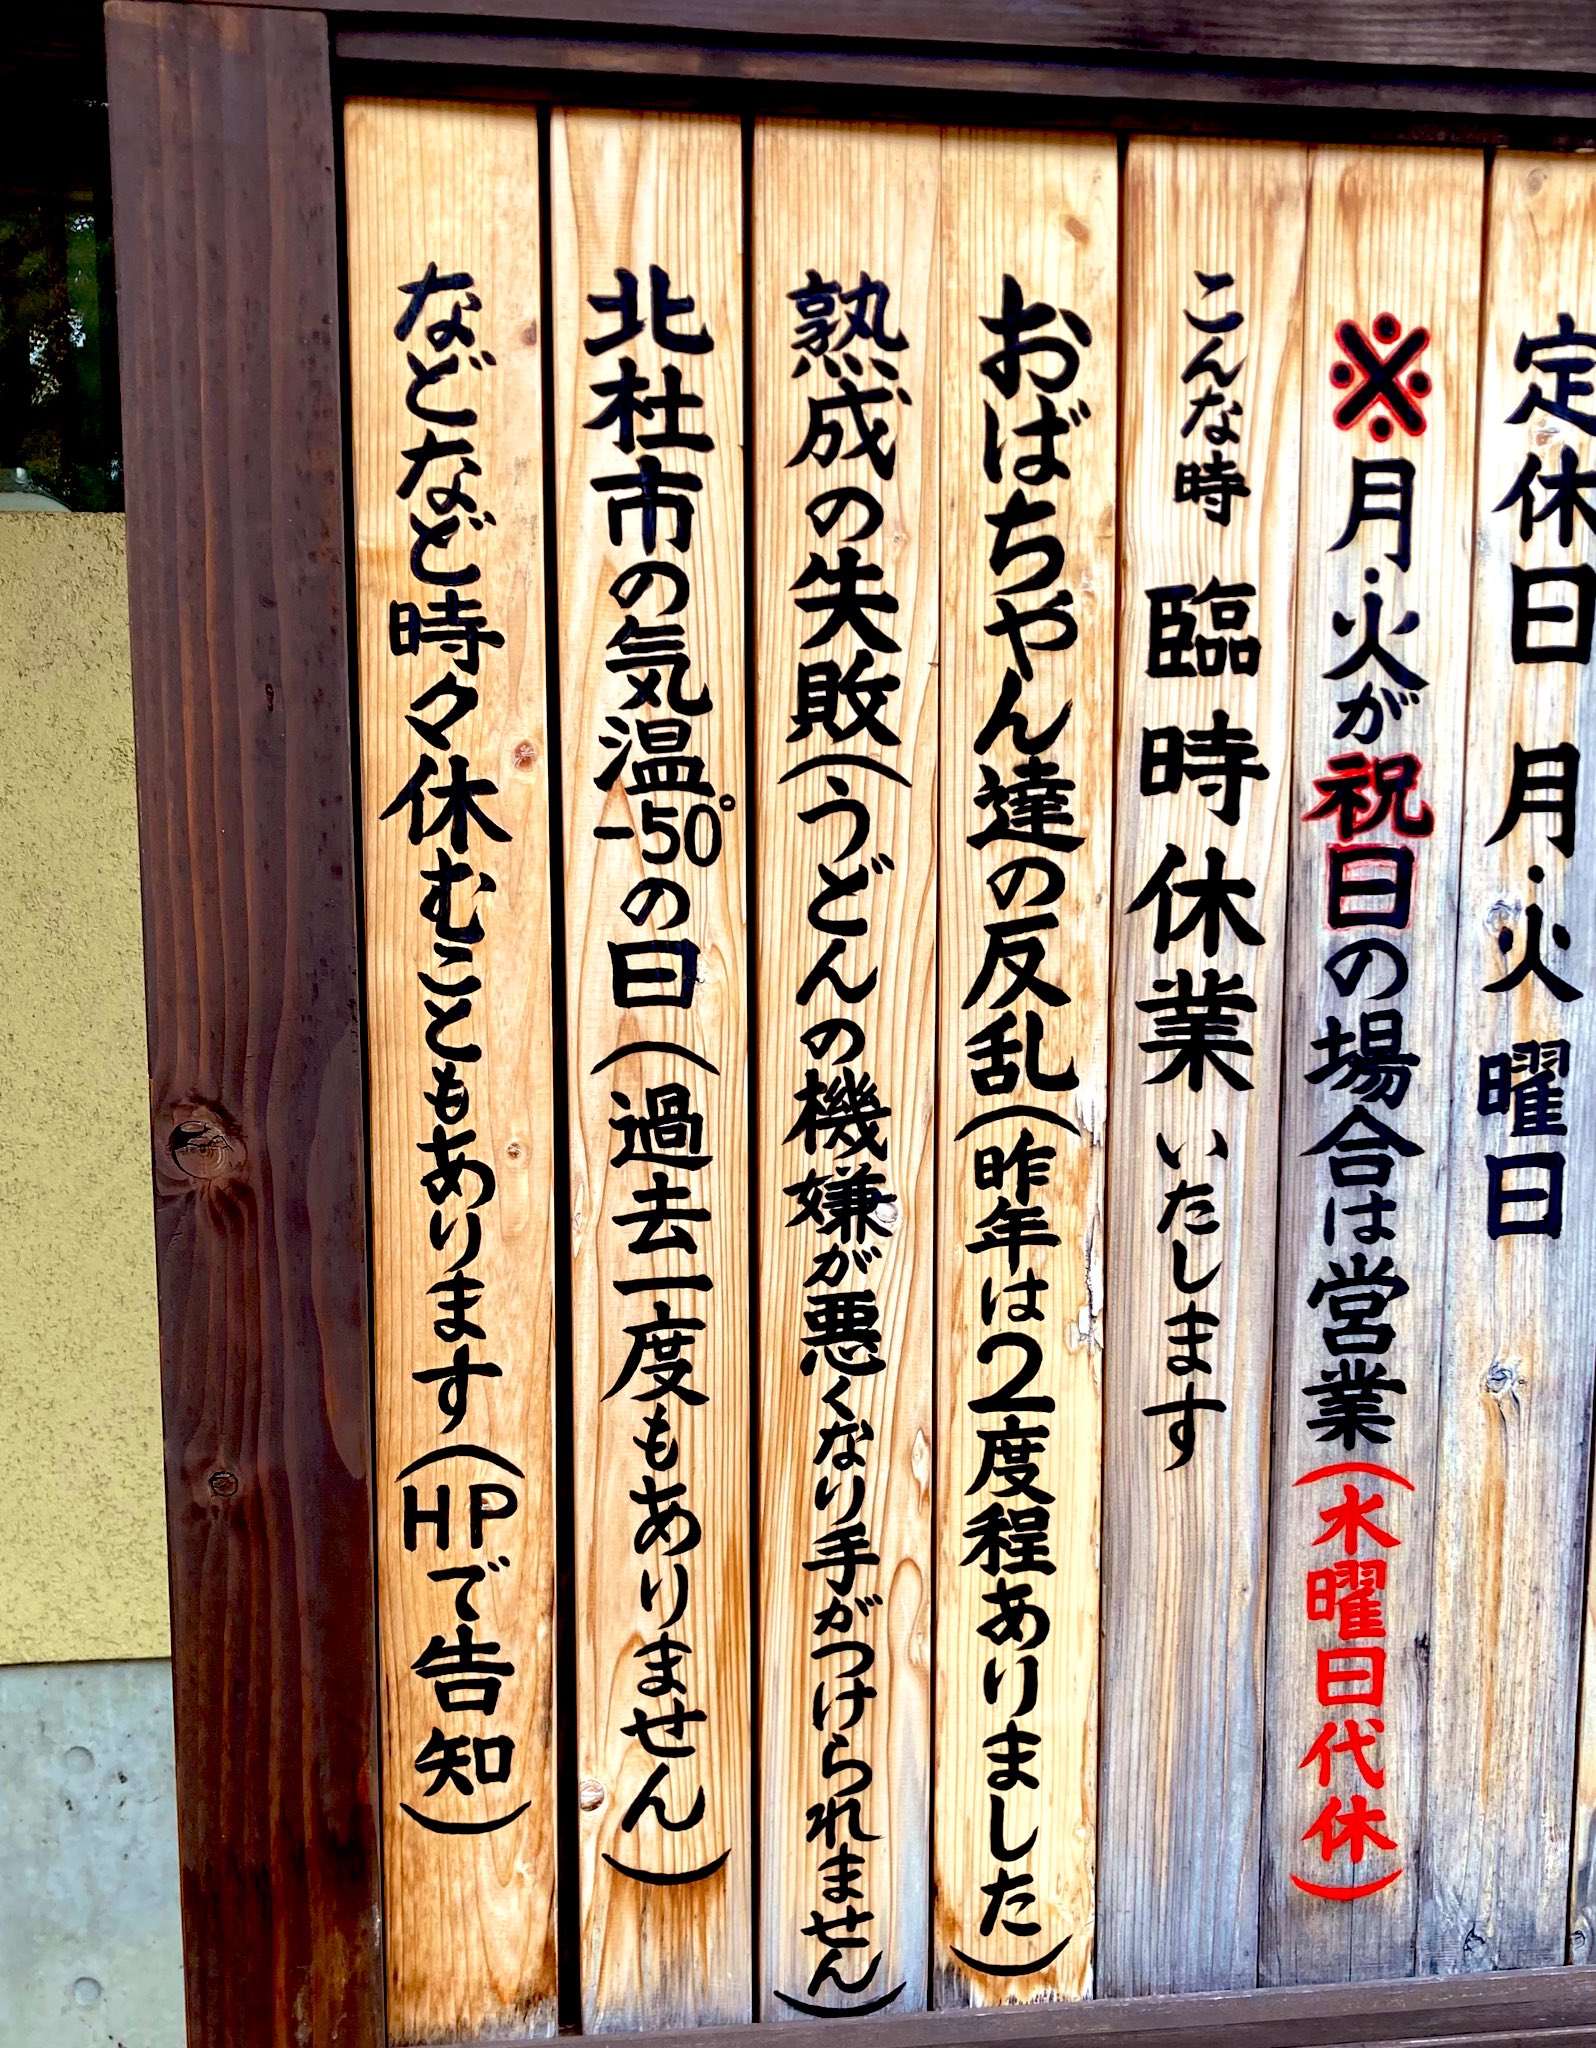 定休日 月・火曜日
※月・火が祝日の場合は営業(水曜日代休)
こんな時 臨時休業いたします
おばちゃん達の反乱(昨年は2度程ありました)
熟成の失敗(うどんの機嫌が悪くなり手がつけられません)
北杜市の気温-50°の日(過去一度もありません)
などなど時々休むこともあります(HPで告知)